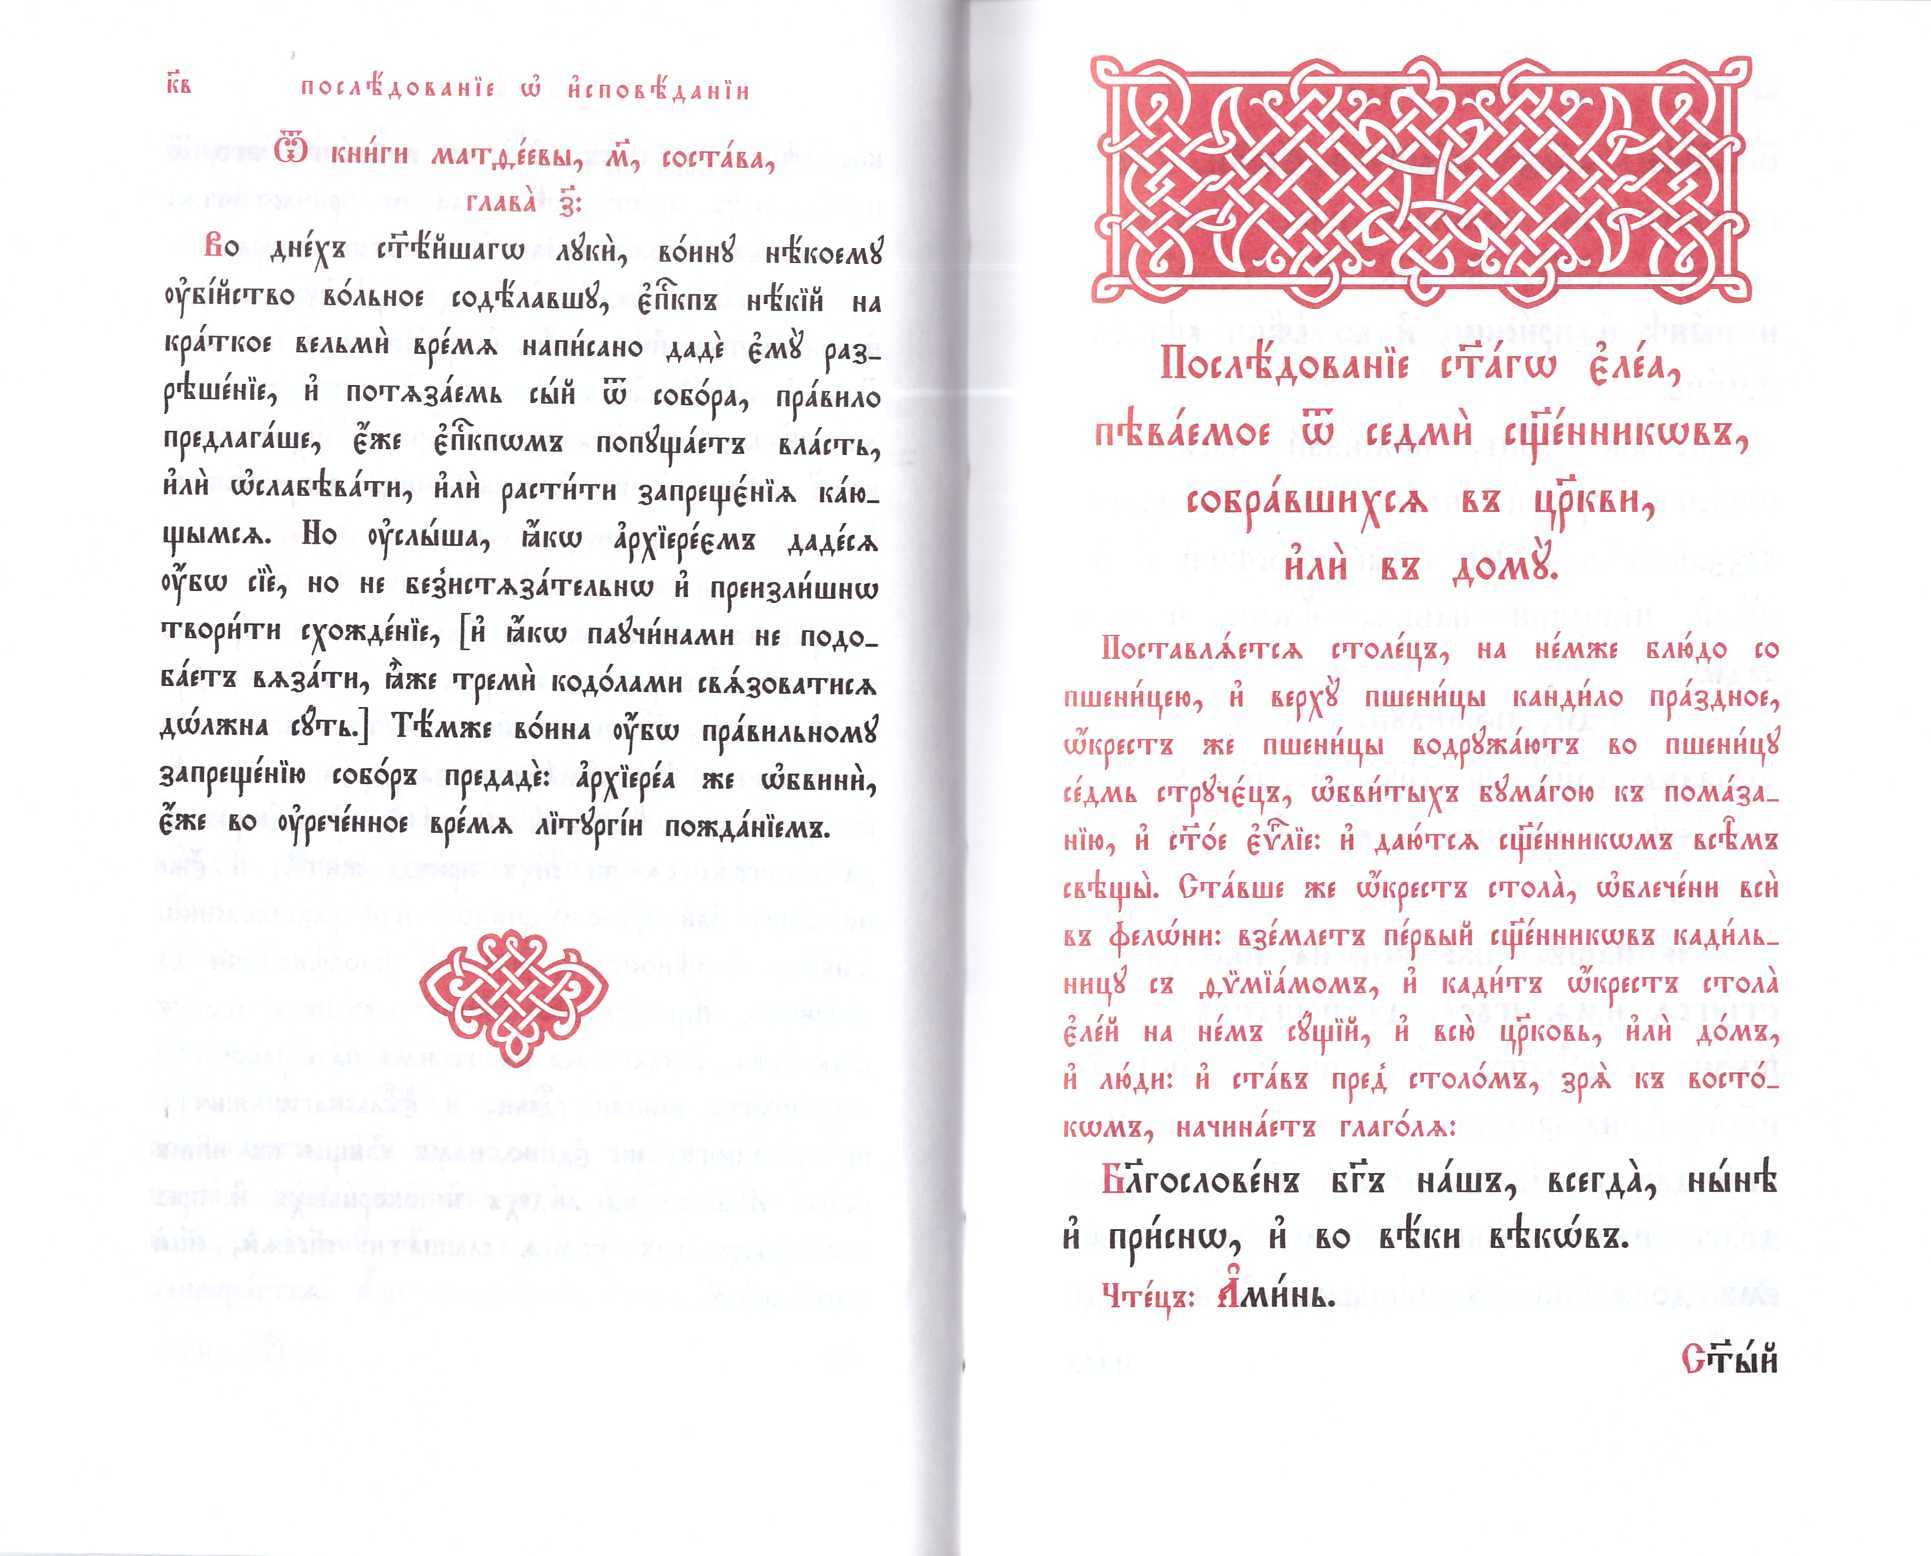 к҃в послѣ́дованїе ѡ҆ и҆сповѣ́данїи
Ѿ кни́ги матѳе́евы, м҃, соста́ва,
глава̀ з҃:
Во дне́хъ ст҃ѣ́йшагѡ лꙋкѝ, во́инꙋ нѣ́коемꙋ
ᲂу҆бі́йство во́льное содѣ́лавшꙋ, є҆пⷭ҇кпъ нѣ́кїй на
кра́ткое вельмѝ вре́мѧ напи́сано дадѐ є҆мꙋ̀ раз_
рѣше́нїе, и҆ потѧза́емь сы́й ѿ собо́ра, пра́вило
предлага́ше, є҆́же є҆пⷭ҇кпѡмъ попꙋща́етъ вла́сть,
и҆лѝ ѡ҆слабѣва́ти, и҆лѝ расти́ти запреще́нїѧ ка́ю_
щымсѧ. Но ᲂу҆слы́ша, ꙗ҆́кѡ а҆рхїере́ємъ даде́сѧ
ᲂу҆́бѡ сїѐ, но не без̾истѧза́тельнѡ и҆ преизли́шнѡ
твори́ти схожде́нїе, [и҆ ꙗ҆́кѡ паꙋчи́нами не подо_
ба́етъ вѧза́ти, ꙗ҆̀же тремѝ кодо́лами свѧ́зоватисѧ
дѡ́лжна сꙋ́ть.] Тѣ́мже во́ина ᲂу҆́бѡ пра́вильномꙋ
запреще́нїю собо́ръ предадѐ: а҆рхїере́а же ѡ҆бвинѝ,
є҆́же во ᲂу҆рече́нное вре́мѧ лїтꙋргі́и пожда́нїемъ.
Послѣ́дованїе ст҃а́гѡ є҆ле́а,
пѣва́емое ѿ седмѝ сщ҃е́нникѡвъ,
собра́вшихсѧ въ цр҃кви,
и҆лѝ въ домꙋ̀.
Поставлѧ́етсѧ столе́цъ, на не́мже блю́до со
пшени́цею, и҆ верхꙋ̀ пшени́цы канди́ло пра́здное,
ѡ҆́крестъ же пшени́цы водрꙋжа́ютъ во пшени́цꙋ
се́дмь стрꙋче́цъ, ѡ҆бви́тыхъ бꙋма́гою къ пома́за_
нїю, и҆ ст҃о́е є҆ѵⷢ҇лїе: и҆ даю́тсѧ сщ҃е́нникѡмъ всѣ̑мъ
свѣщы̀. Ста́вше же ѡ҆́крестъ стола̀, ѡ҆блече́ни всѝ
въ фелѡ́ни: взе́млетъ пе́рвый сщ҃е́нникѡвъ кади́ль_
ницꙋ съ ѳѷмїа́момъ, и҆ кади́тъ ѡ҆́крестъ стола̀
є҆ле́й на не́мъ сꙋ́щїй, и҆ всю̀ цр҃ковь, и҆лѝ до́мъ,
и҆ лю́ди: и҆ ста́въ пред̾ столо́мъ, зрѧ̀ къ восто́_
кѡмъ, начина́етъ глаго́лѧ:
Бл҃гослове́нъ бг҃ъ на́шъ, всегда̀, ны́нѣ
и҆ при́снѡ, и҆ во вѣ́ки вѣкѡ́въ.
Чте́цъ: А҆ми́нь.
Ст҃ы́й